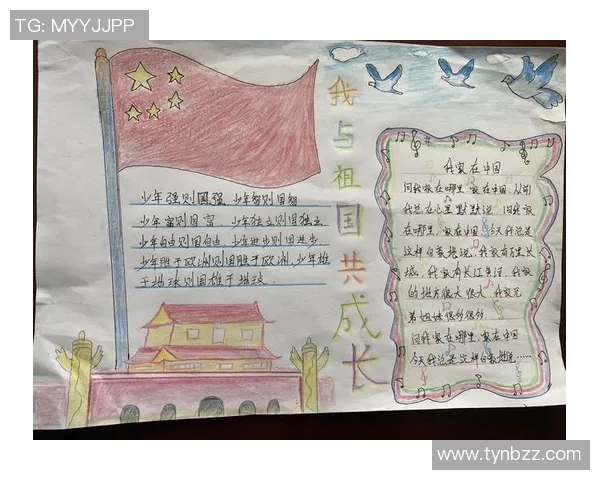 TG: MYYJJPP
我与祖国共成长
少年强则国强、少年智则国智
少年富则国富 少年独立则国独立
少年自由则国自由 少年进步则国进步
少年胜于欧洲则国胜于欧洲、少年雄
于地球则国雄于地球
我家在中国
问我家在哪里 家在中国 从前
我总在心里默默说 问我家
在哪里 家在中国 今天我总是
这样自豪地说 我家有万里长
城 我家有长江黄河 我家
的地方很大很大 我家兄
弟姐妹很多很多
问我家在哪里 家在中国
今天我总是这样自豪地说……
www.tynbzz.com